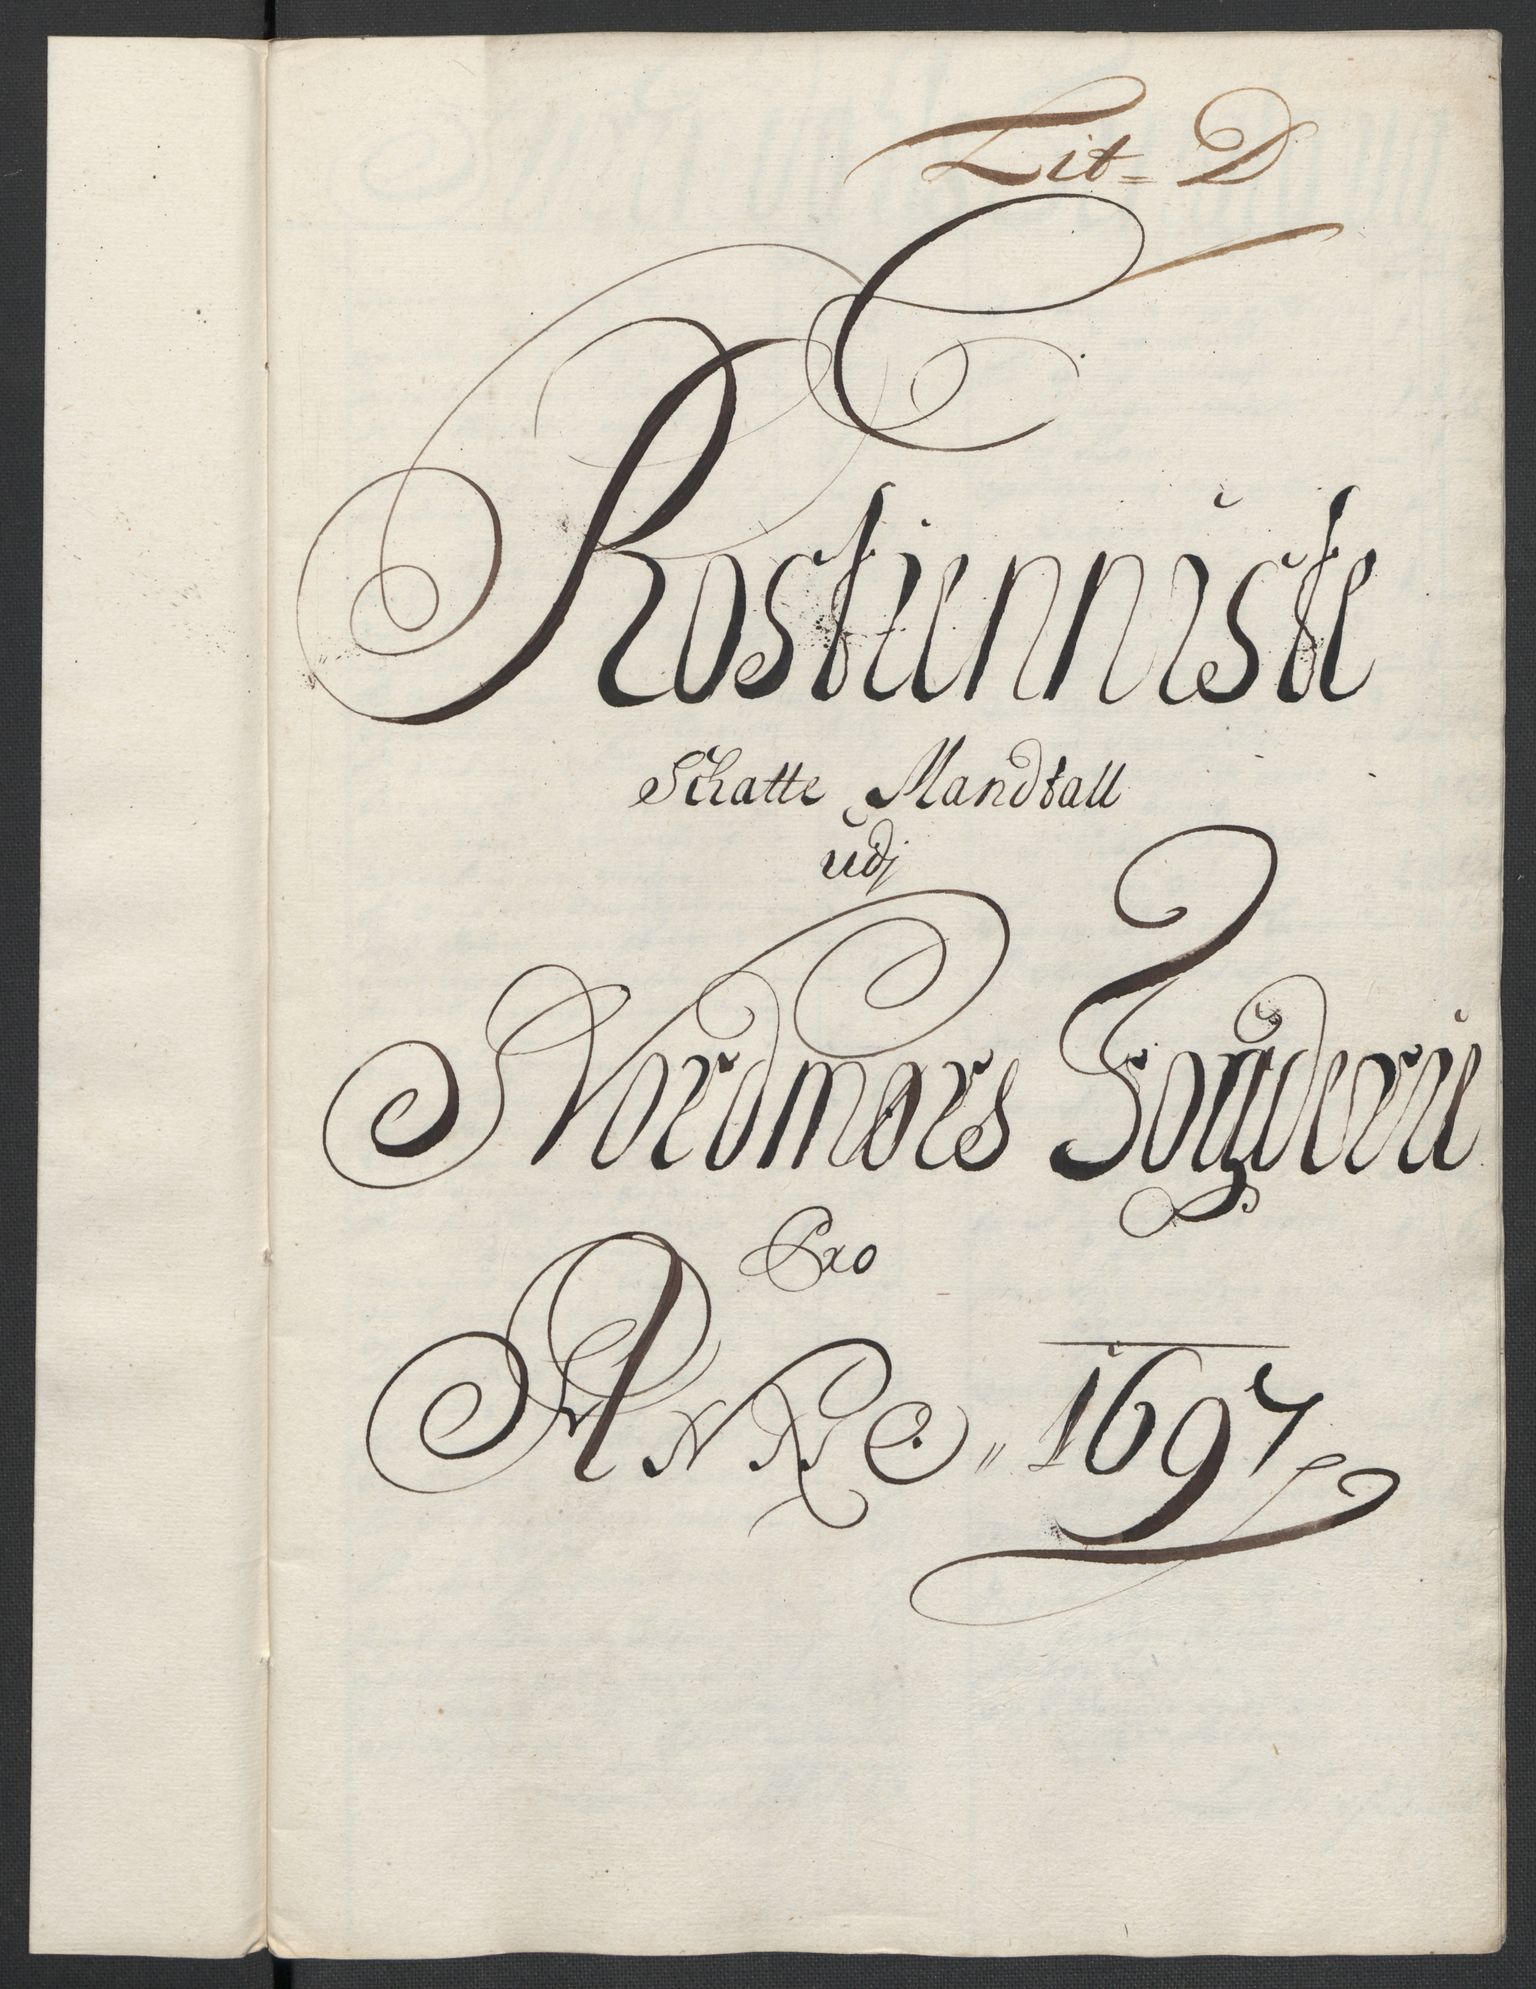 Lit= D
Rostienniste
Schatte Mandtall
udj
Nordmørs Fogderie
Pro
ANNO,, 1697